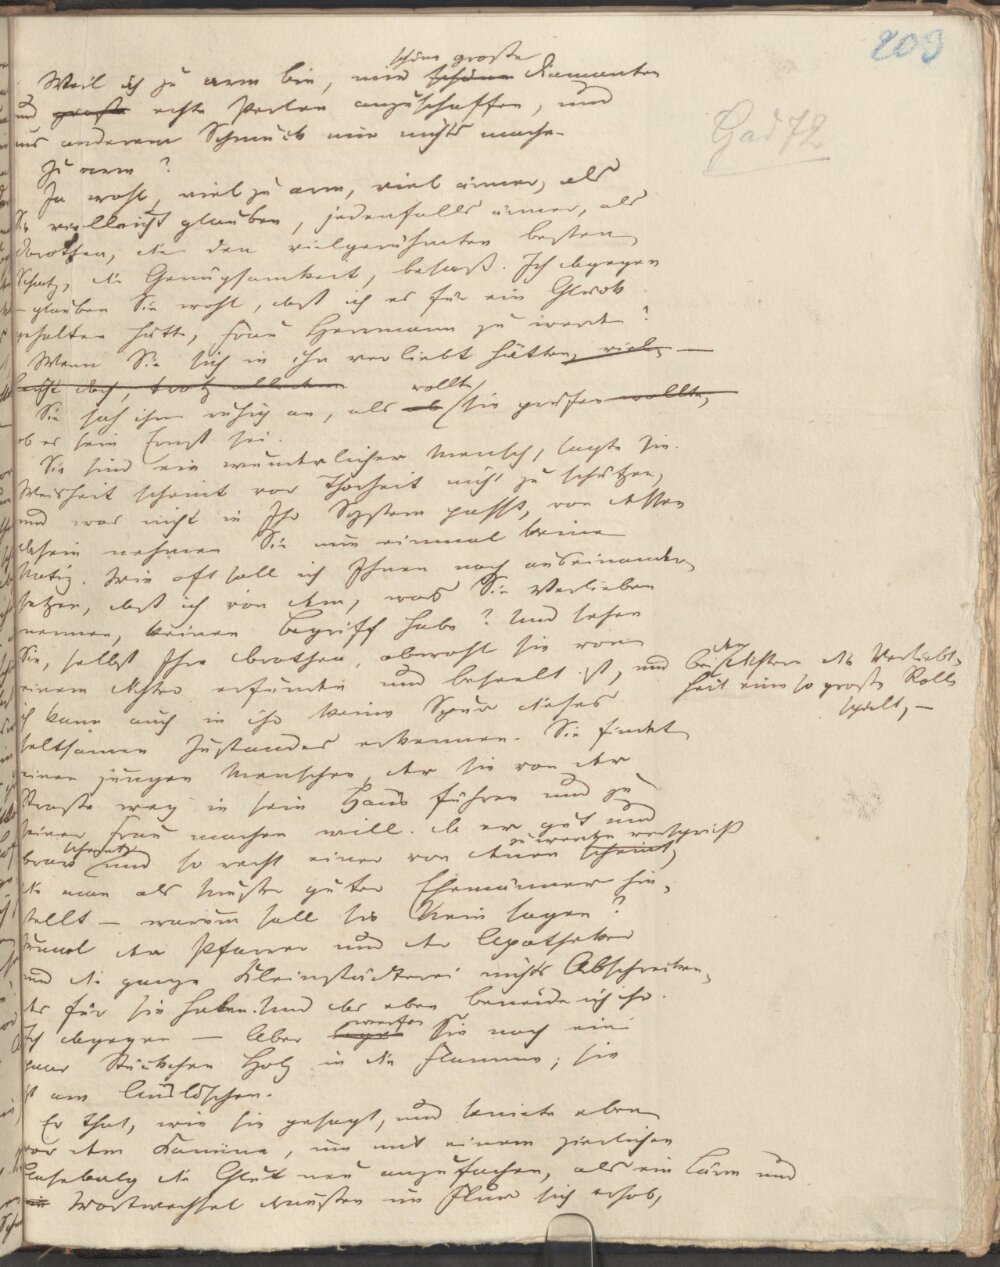 203
Gad 72
Weil ich zu arm bin, mir schöne große Diamanten
und echte Perlen anzuschaffen, und
aus anderem Schmuck mir nichts mache.
Zu arm?
Ja wohl, viel zu arm, viel ärmer, als
Sie vielleicht glauben, jedenfalls ärmer, als
Dorothea, die den vielgerühmten besten
Schatz, die Genügsamkeit, besaß. Ich dagegen
– glauben Sie wohl, daß ich es für ein Glück
gehalten hätte, Frau Herrmann zu werden?
Wenn Sie sich in ihn verliebt hätten, viel –
leicht doch, trotz alledem
Sie sah ihn ruhig an, als wollte sie prüfen wollte,
ob es sein Ernst sei.
Sie sind ein wunderlicher Mensch, sagte sie.
Weisheit scheint vor Thorheit nicht zu schützen,
und was nicht in Ihr System paßt, von dessen
Dasein nehmen Sie nun einmal keine
Notiz. Wie oft soll ich Ihnen noch auseinander
setzen, daß ich von dem, was Sie Verlieben
nennen, keinen Begriff habe? Und sehen
Sie, selbst Ihre Dorothea, obwohl sie von
einem Dichter erfunden und beseelt ist, und bei den Dichtern die Verliebt-
heit eine so große Rolle
spielt, –
ich kann auch in ihr keine Spur dieses
seltsamen Zustandes erkennen. Sie findet
einen jungen Menschen, der sie von der
Straße weg in sein Haus führen und zu
seiner Frau machen will. Da er gut und
brav scheint und so recht einer von denen zu werden verspricht scheint,
die man als Muster guter Ehemänner hin-
stellt – warum soll sie Nein sagen?
zumal der Pfarrer und der Apotheker
und die ganze Kleinstädterei nichts Abschrecken-
des für sie haben. Und das eben beneide ich ihr.
Ich dagegen – Aber werfen Sie noch ein
paar Stückchen Holz in die Flamme; sie
ist am Auslöschen.
Er that, wie sie gesagt, und kniete eben
vor dem Kamine, um mit einem zierlichen
Blasebalg die Glut neu anzufachen, als ein Lärm und
Wortwechsel draußen im Flur sich erhob,